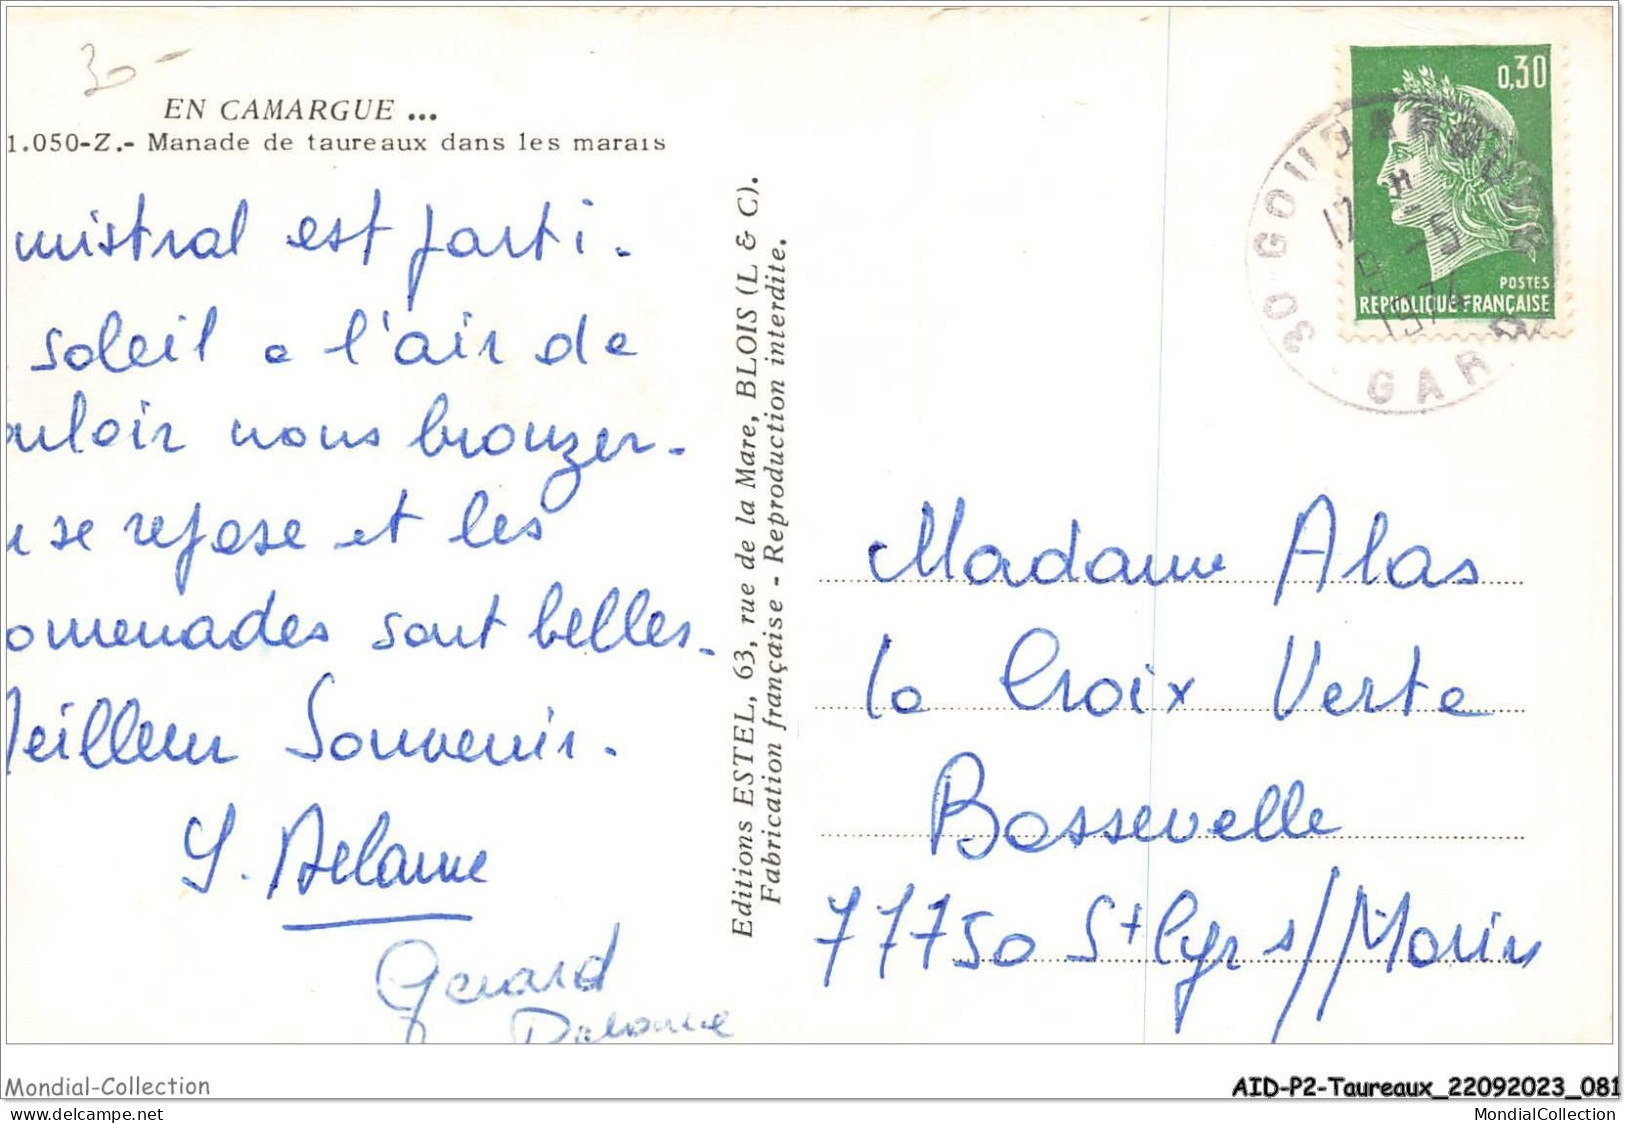 30-
EN CAMARGUE ...
1.050-Z.- Manade de taureaux dans les marais
mistral est parti.
soleil a l'air de
ouloir nous bronzer.
se repose et les
omenades sont belles.
Meilleur Souvenir.
Gerard
Editions ESTEL, 63, rue de la Mare, BLOIS (L & C).
Fabrication française - Reproduction interdite.
0,30
POSTES
REPUBLIQUE FRANÇAISE
30 GOUDARGUES
17 H
-5
1974
GARD
Madame Alas
la Croix Verte
Bassevelle
77750 St Cyr s/Morin
Mondial-Collection
AID-P2-Taureaux_22092023_081
MondialCollection